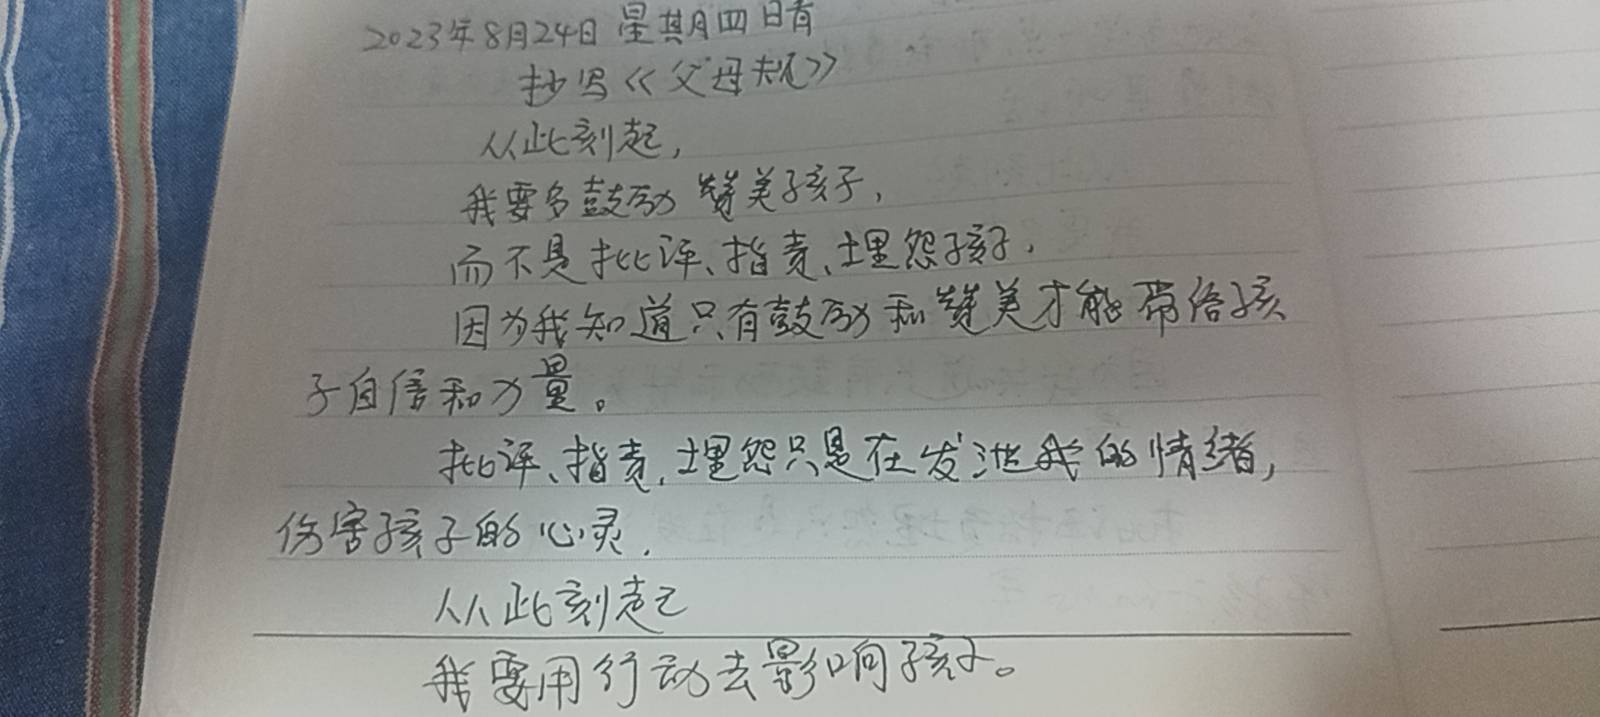 2023年8月24日 星期四 日青
抄写《父母规》
从此刻起，
我要多鼓励 赞美孩子，
而不是批评、指责、埋怨孩子.
因为我知道只有鼓励和赞美才能带给孩
子自信和力量。
批评、指责，埋怨只是在发泄我的情绪，
伤害孩子的心灵.
从此刻起
我要用行动去影响孩子。